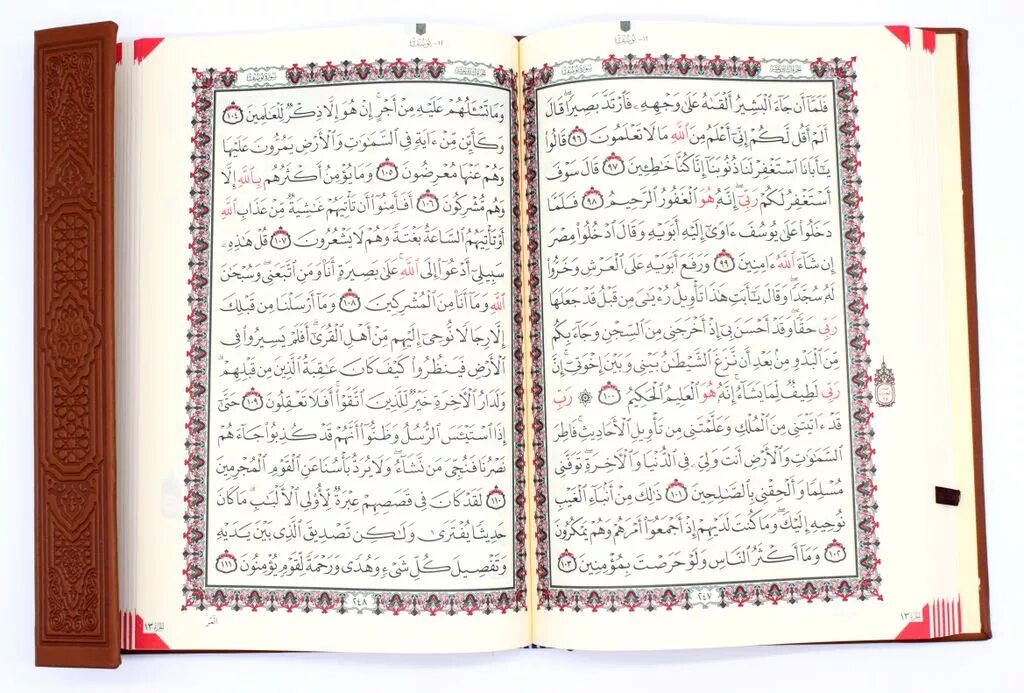 ١٢- يوسف
سورة يوسف
فَلَمَّآ أَن جَآءَ ٱلْبَشِيرُ أَلْقَىٰهُ عَلَىٰ وَجْهِهِۦ فَٱرْتَدَّ بَصِيرًا ۖ قَالَ
أَلَمْ أَقُل لَّكُمْ إِنِّىٓ أَعْلَمُ مِنَ ٱللَّهِ مَا لَا تَعْلَمُونَ ٩٦ قَالُوا۟
يَـٰٓأَبَانَا ٱسْتَغْفِرْ لَنَا ذُنُوبَنَآ إِنَّا كُنَّا خَـٰطِـِٔينَ ٩٧ قَالَ سَوْفَ
أَسْتَغْفِرُ لَكُمْ رَبِّىٓ ۖ إِنَّهُۥ هُوَ ٱلْغَفُورُ ٱلرَّحِيمُ ٩٨ فَلَمَّا
دَخَلُوا۟ عَلَىٰ يُوسُفَ ءَاوَىٰٓ إِلَيْهِ أَبَوَيْهِ وَقَالَ ٱدْخُلُوا۟ مِصْرَ
إِن شَآءَ ٱللَّهُ ءَامِنِينَ ٩٩ وَرَفَعَ أَبَوَيْهِ عَلَى ٱلْعَرْشِ وَخَرُّوا۟
لَهُۥ سُجَّدًا ۖ وَقَالَ يَـٰٓأَبَتِ هَـٰذَا تَأْوِيلُ رُءْيَـٰىَ مِن قَبْلُ قَدْ جَعَلَهَا
رَبِّى حَقًّا ۖ وَقَدْ أَحْسَنَ بِىٓ إِذْ أَخْرَجَنِى مِنَ ٱلسِّجْنِ وَجَآءَ بِكُم
مِّنَ ٱلْبَدْوِ مِنۢ بَعْدِ أَن نَّزَغَ ٱلشَّيْطَـٰنُ بَيْنِى وَبَيْنَ إِخْوَتِىٓ ۚ إِنَّ
رَبِّى لَطِيفٌ لِّمَا يَشَآءُ ۚ إِنَّهُۥ هُوَ ٱلْعَلِيمُ ٱلْحَكِيمُ ١٠٠ ۞ رَبِّ
قَدْ ءَاتَيْتَنِى مِنَ ٱلْمُلْكِ وَعَلَّمْتَنِى مِن تَأْوِيلِ ٱلْأَحَادِيثِ ۚ فَاطِرَ
ٱلسَّمَـٰوَٰتِ وَٱلْأَرْضِ أَنتَ وَلِىِّۦ فِى ٱلدُّنْيَا وَٱلْـَٔاخِرَةِ ۖ تَوَفَّنِى
مُسْلِمًا وَأَلْحِقْنِى بِٱلصَّـٰلِحِينَ ١٠١ ذَٰلِكَ مِنْ أَنۢبَآءِ ٱلْغَيْبِ
نُوحِيهِ إِلَيْكَ ۖ وَمَا كُنتَ لَدَيْهِمْ إِذْ أَجْمَعُوٓا۟ أَمْرَهُمْ وَهُمْ يَمْكُرُونَ
١٠٢ وَمَآ أَكْثَرُ ٱلنَّاسِ وَلَوْ حَرَصْتَ بِمُؤْمِنِينَ ١٠٣
٢٤٧
الجزء ١٣
١٢- يوسف
سورة يوسف
وَمَا تَسْـَٔلُهُمْ عَلَيْهِ مِنْ أَجْرٍ ۚ إِنْ هُوَ إِلَّا ذِكْرٌ لِّلْعَـٰلَمِينَ ١٠٤
وَكَأَيِّن مِّنْ ءَايَةٍ فِى ٱلسَّمَـٰوَٰتِ وَٱلْأَرْضِ يَمُرُّونَ عَلَيْهَا
وَهُمْ عَنْهَا مُعْرِضُونَ ١٠٥ وَمَا يُؤْمِنُ أَكْثَرُهُم بِٱللَّهِ إِلَّا
وَهُم مُّشْرِكُونَ ١٠٦ أَفَأَمِنُوٓا۟ أَن تَأْتِيَهُمْ غَـٰشِيَةٌ مِّنْ عَذَابِ ٱللَّهِ
أَوْ تَأْتِيَهُمُ ٱلسَّاعَةُ بَغْتَةً وَهُمْ لَا يَشْعُرُونَ ١٠٧ قُلْ هَـٰذِهِۦ
سَبِيلِىٓ أَدْعُوٓا۟ إِلَى ٱللَّهِ ۚ عَلَىٰ بَصِيرَةٍ أَنَا۠ وَمَنِ ٱتَّبَعَنِى ۖ وَسُبْحَـٰنَ
ٱللَّهِ وَمَآ أَنَا۠ مِنَ ٱلْمُشْرِكِينَ ١٠٨ وَمَآ أَرْسَلْنَا مِن قَبْلِكَ
إِلَّا رِجَالًا نُّوحِىٓ إِلَيْهِم مِّنْ أَهْلِ ٱلْقُرَىٰٓ ۗ أَفَلَمْ يَسِيرُوا۟ فِى
ٱلْأَرْضِ فَيَنظُرُوا۟ كَيْفَ كَانَ عَـٰقِبَةُ ٱلَّذِينَ مِن قَبْلِهِمْ ۗ
وَلَدَارُ ٱلْـَٔاخِرَةِ خَيْرٌ لِّلَّذِينَ ٱتَّقَوْا۟ ۗ أَفَلَا تَعْقِلُونَ ١٠٩ حَتَّىٰٓ
إِذَا ٱسْتَيْـَٔسَ ٱلرُّسُلُ وَظَنُّوٓا۟ أَنَّهُمْ قَدْ كُذِبُوا۟ جَآءَهُمْ
نَصْرُنَا فَنُجِّىَ مَن نَّشَآءُ ۖ وَلَا يُرَدُّ بَأْسُنَا عَنِ ٱلْقَوْمِ ٱلْمُجْرِمِينَ
١١٠ لَقَدْ كَانَ فِى قَصَصِهِمْ عِبْرَةٌ لِّأُو۟لِى ٱلْأَلْبَـٰبِ ۗ مَا كَانَ
حَدِيثًا يُفْتَرَىٰ وَلَـٰكِن تَصْدِيقَ ٱلَّذِى بَيْنَ يَدَيْهِ
وَتَفْصِيلَ كُلِّ شَىْءٍ وَهُدًى وَرَحْمَةً لِّقَوْمٍ يُؤْمِنُونَ ١١١
٢٤٨
الجزء ١٣